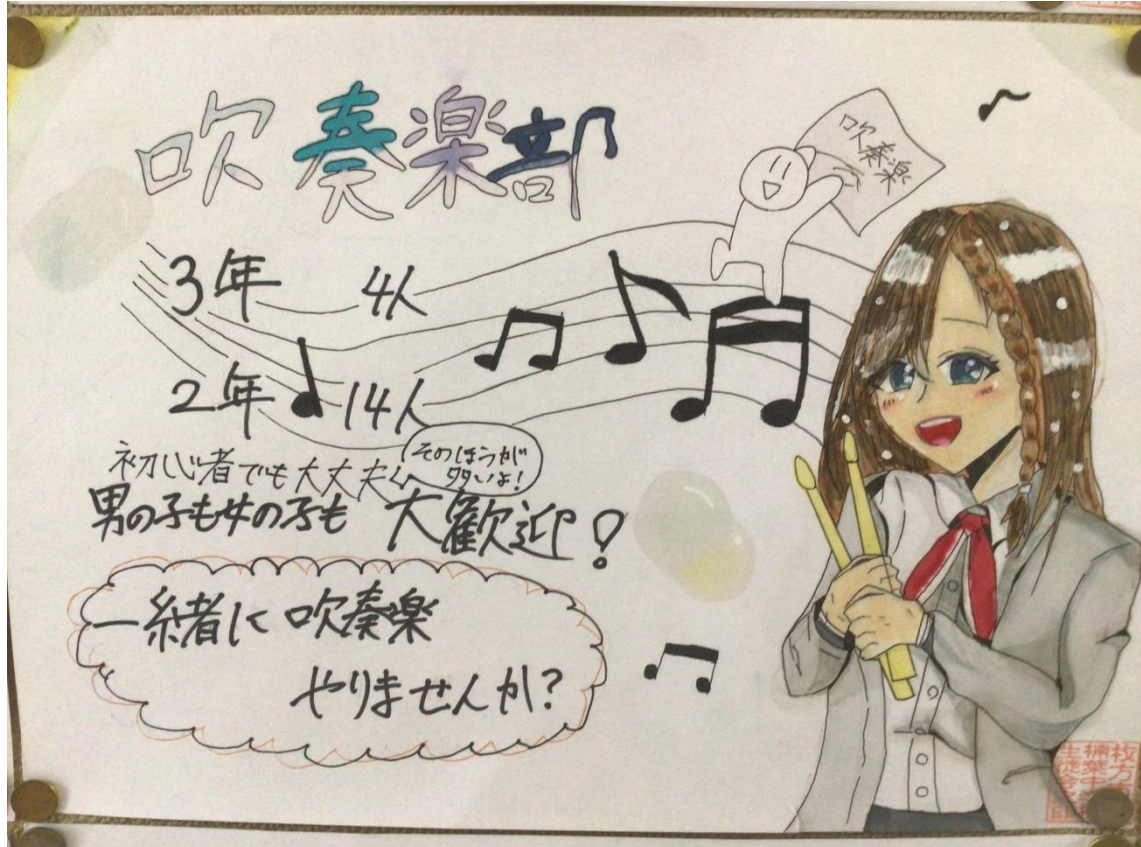 吹奏楽部
吹奏楽
3年 4人
2年 14人
初心者でも大丈夫
そのほうが
多いよ!
男の子も女の子も 大歓迎!
一緒に吹奏楽
やりませんか?